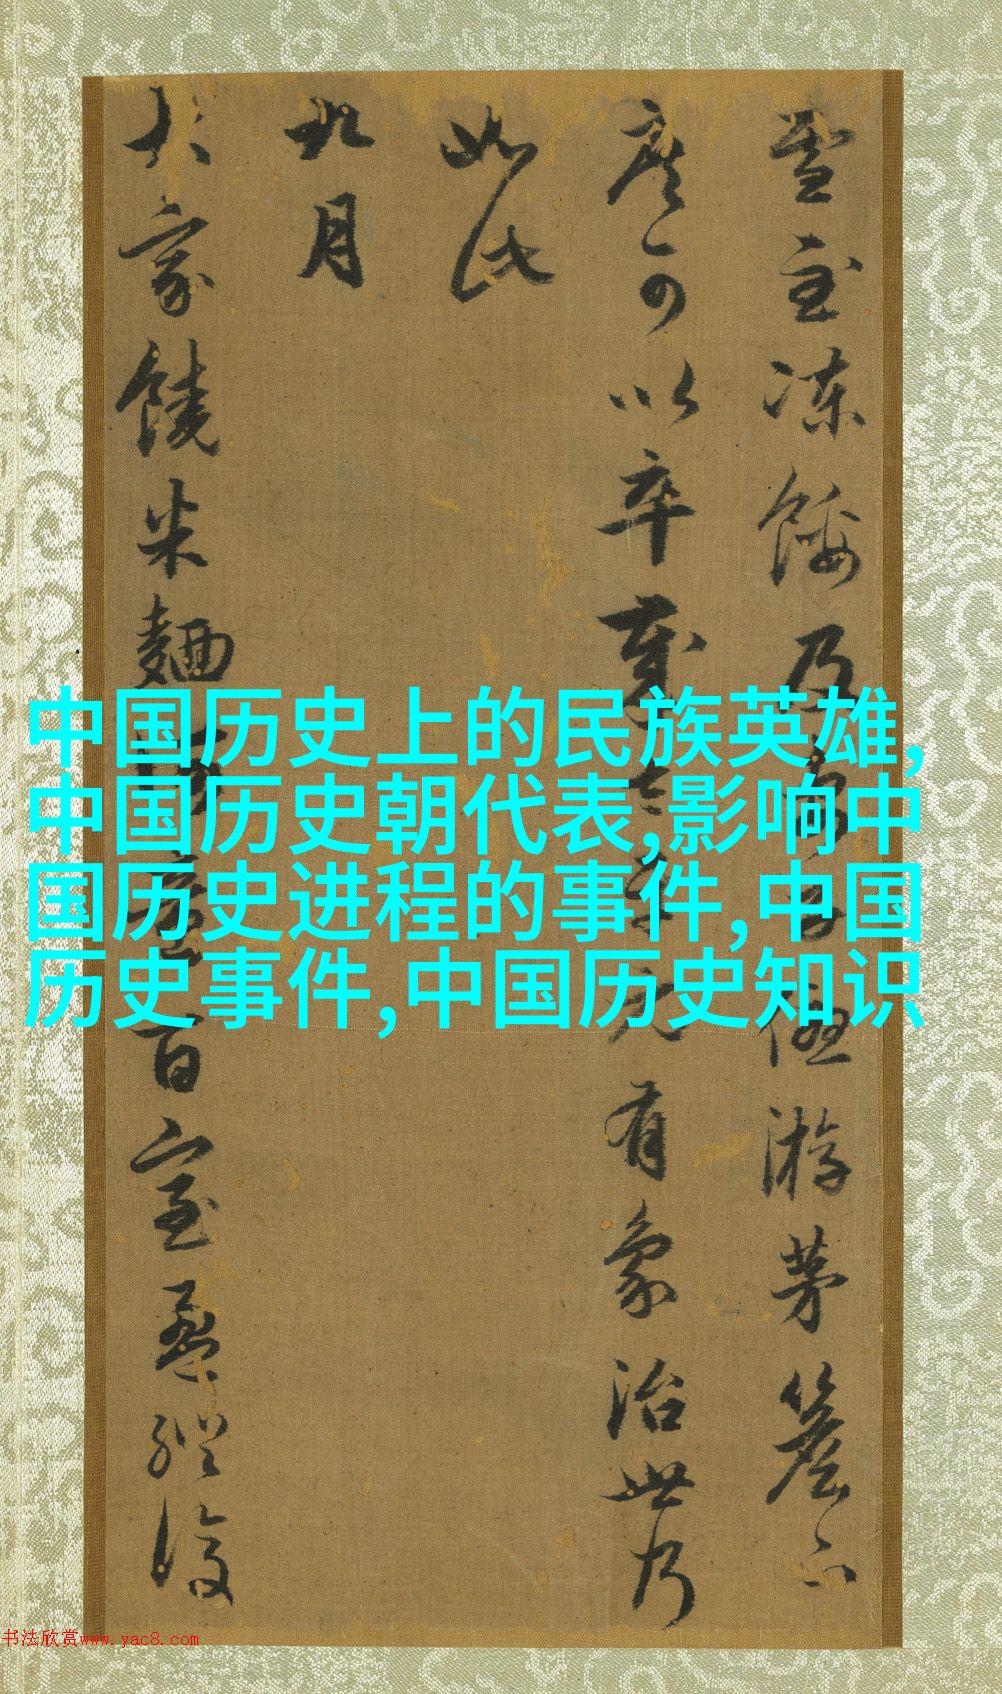 中国历史上的民族英雄,
中国历史朝代表,影响中
国历史进程的事件,中国
历史事件,中国历史知识
雪至冻馁乃
游茅簷下
度可以卒歳
有象治世乃
如此
九月
大家饒米麵
百室盈縱復
书法欣赏www.yac8.com